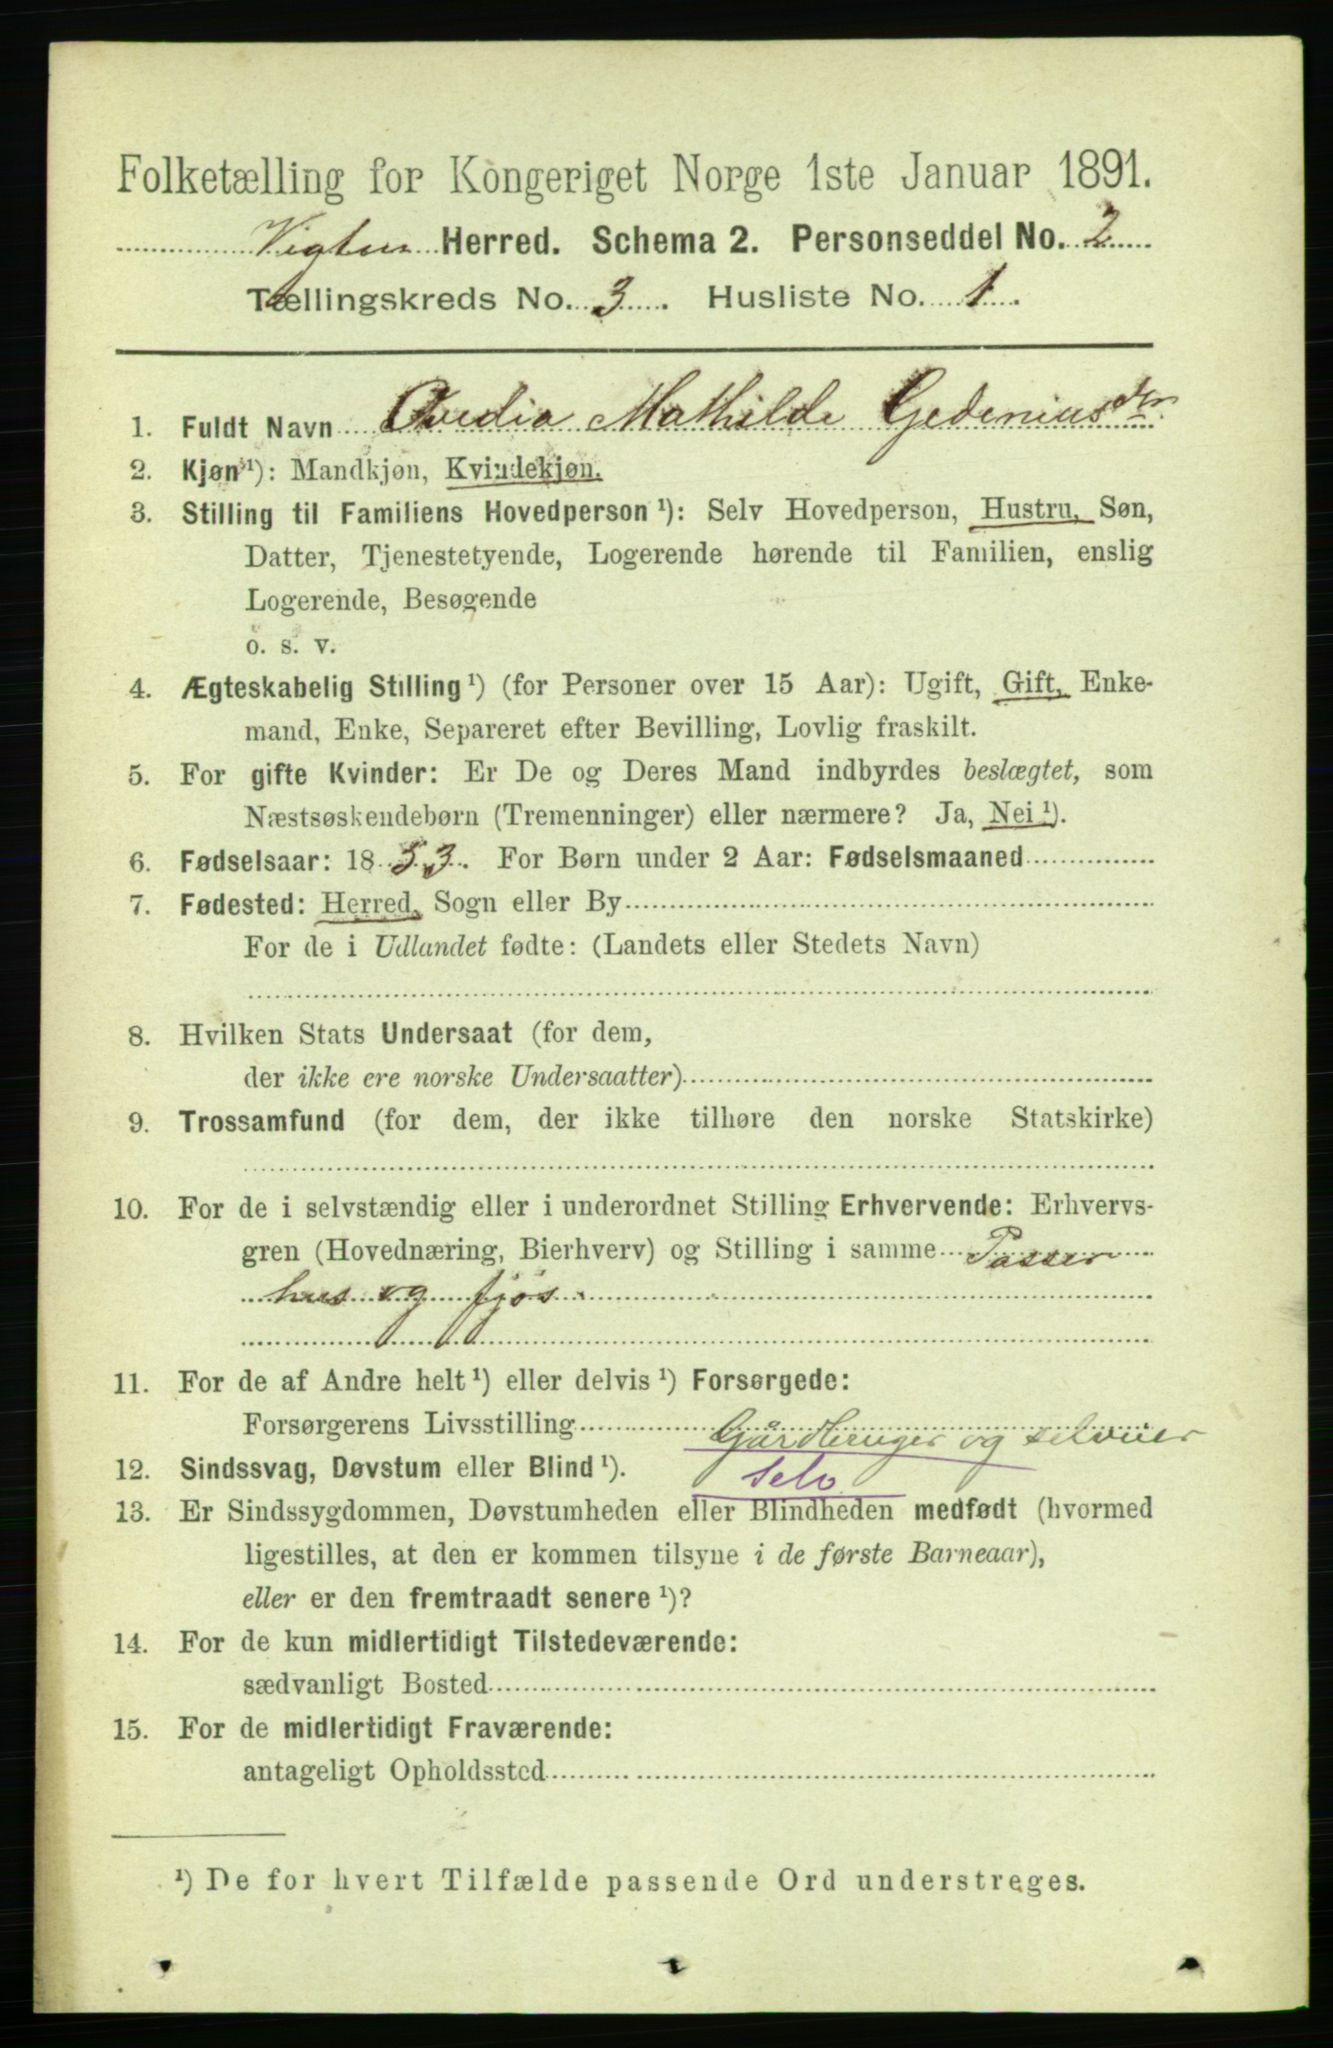 Folketælling for Kongeriget Norge 1ste Januar 1891.
Vigten Herred. Schema 2. Personseddel No. 2
Tællingskreds No. 3. Husliste No. 1.
1. Fuldt Navn Ovedia Mathilde Gedeniusdtr
2. Kjøn ¹): Mandkjøn, Kvindekjøn.
3. Stilling til Familiens Hovedperson ¹): Selv Hovedperson, Hustru, Søn,
Datter, Tjenestetyende, Logerende hørende til Familien, enslig
Logerende, Besøgende
o. s. v.
4. Ægteskabelig Stilling ¹) (for Personer over 15 Aar): Ugift, Gift, Enke-
mand, Enke, Separeret efter Bevilling, Lovlig fraskilt.
5. For gifte Kvinder: Er De og Deres Mand indbyrdes beslægtet, som
Næstsøskendebørn (Tremenninger) eller nærmere? Ja, Nei ¹).
6. Fødselsaar: 1853. For Børn under 2 Aar: Fødselsmaaned
7. Fødested: Herred, Sogn eller By
For de i Udlandet fødte: (Landets eller Stedets Navn)
8. Hvilken Stats Undersaat (for dem,
der ikke ere norske Undersaatter)
9. Trossamfund (for dem, der ikke tilhøre den norske Statskirke)
10. For de i selvstændig eller i underordnet Stilling Erhvervende: Erhvervs-
gren (Hovednæring, Bierhverv) og Stilling i samme Passer
hus og fjøs.
11. For de af Andre helt ¹) eller delvis ¹) Forsørgede:
Forsørgerens Livsstilling Gårdbruger og selveier
12. Sindssvag, Døvstum eller Blind ¹). Selv
13. Er Sindssygdommen, Døvstumheden eller Blindheden medfødt (hvormed
ligestilles, at den er kommen tilsyne i de første Barneaar),
eller er den fremtraadt senere ¹)?
14. For de kun midlertidigt Tilstedeværende:
sædvanligt Bosted
15. For de midlertidigt Fraværende:
antageligt Opholdssted
¹) De for hvert Tilfælde passende Ord understreges.